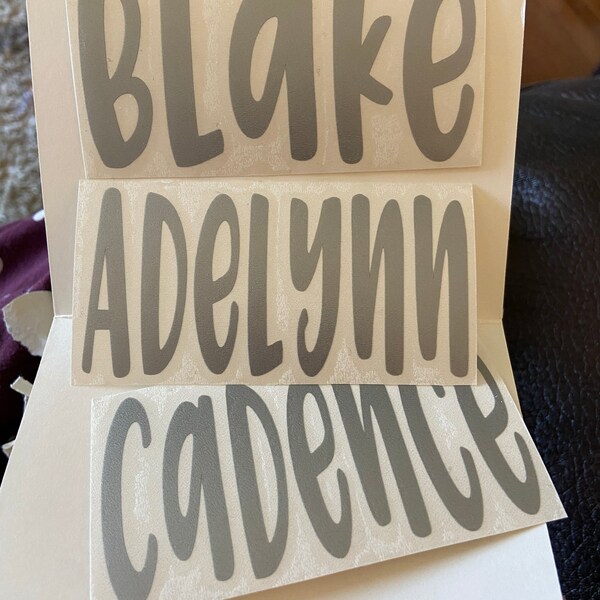 BLake
ADeLynn
CaDence